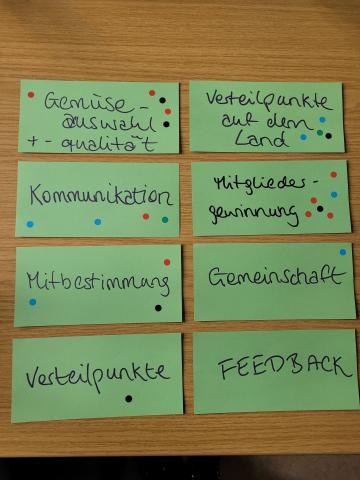 Gemüse-
auswahl
+- qualität
Verteilpunkte
auf dem
Land
Kommunikation
Mitglieder-
gewinnung
Mitbestimmung
Gemeinschaft
Verteilpunkte
FEEDBACK